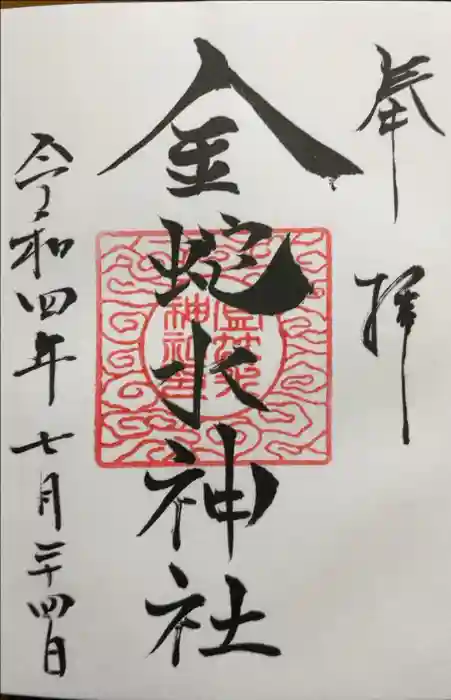 奉拝
金蛇水神社
令和四年七月二十四日